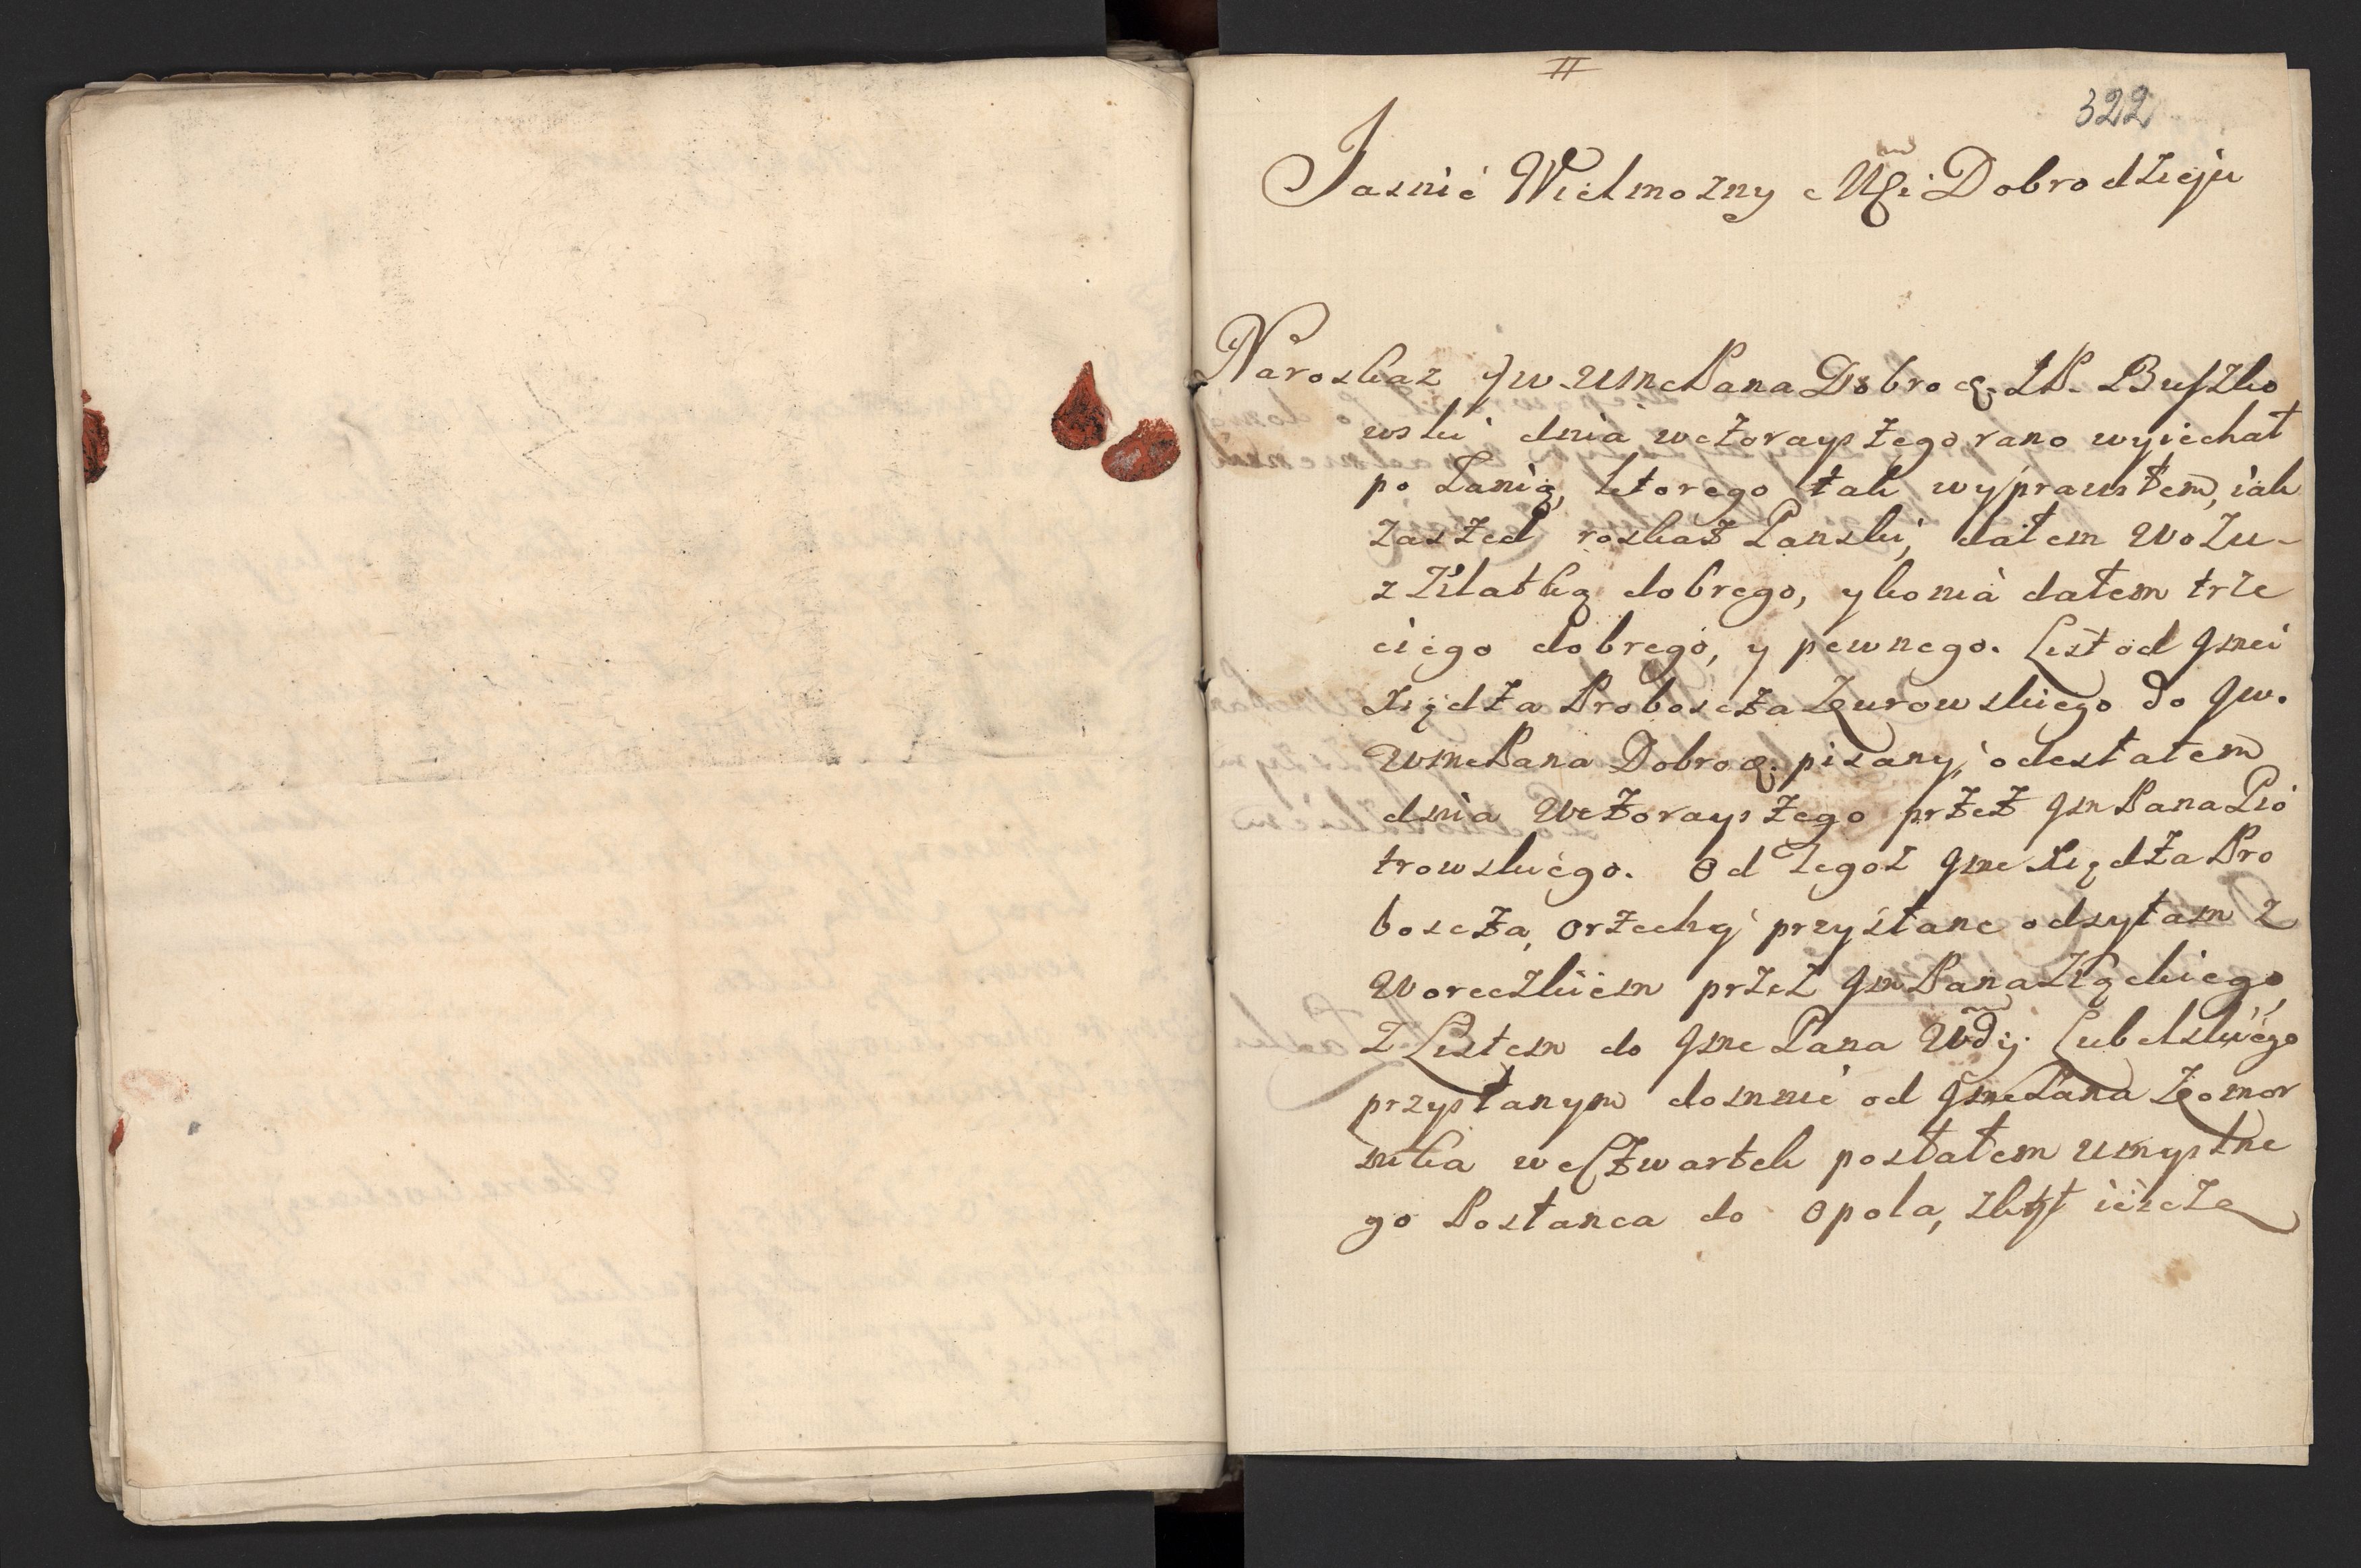 II
322
Jasnie Wielmozny Mſci Dobrodzieju
Na roskaz Jw. WmcPana Dobroȩ. JP. Buſzko
wski dnia wczorayszego rano wyiechał
po Panią, ktorego tak wyprawiłem, iak
zaszed roskaz Panski, dałem Wozu
z Klatką dobrego, y konia dałem trze
ciego dobrego, y pewnego. List od Jmci
Xiędza Proboscza Żurowskiego do Jw.
WmcPana Dobroȩ. pisany, odesłałem
dnia Wczorayszego przez Jm Pana Pio
trowskiego. Od tegoz Jmc Xiędza Pro
boscza, orzechy przysłane odsyłam z
Woreczkiem przez Jm Pana
z Listem do Jmc Pana Wdy. Lubelskiego
przysłanym do mnie od Jmc Pana Komor
nika we Czwartek posłałem umyslne
go Posłanca do Opola, zkąd ieszcze